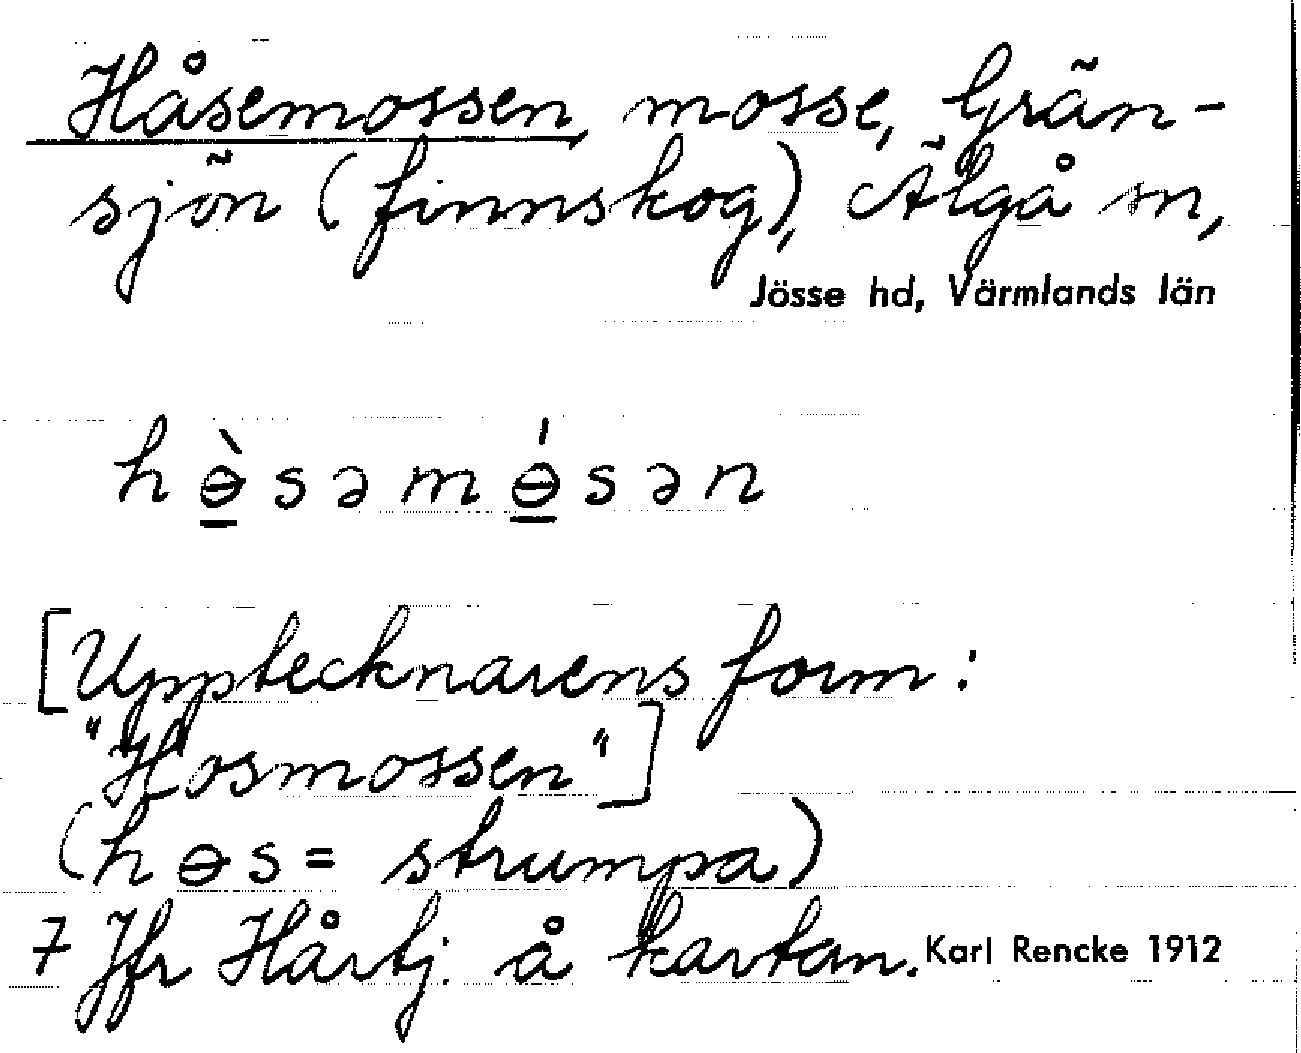 Håsemossen, mosse, Grän-
sjön (finnskog), Älgå sn,
Jösse hd, Värmlands län
hɵ̲̀səmɵ̲́sən
[Upptecknarens form:
"Hosmossen"]
(hɵs = strumpa)
7 Jfr Hårtj. å kartan. Karl Rencke 1912